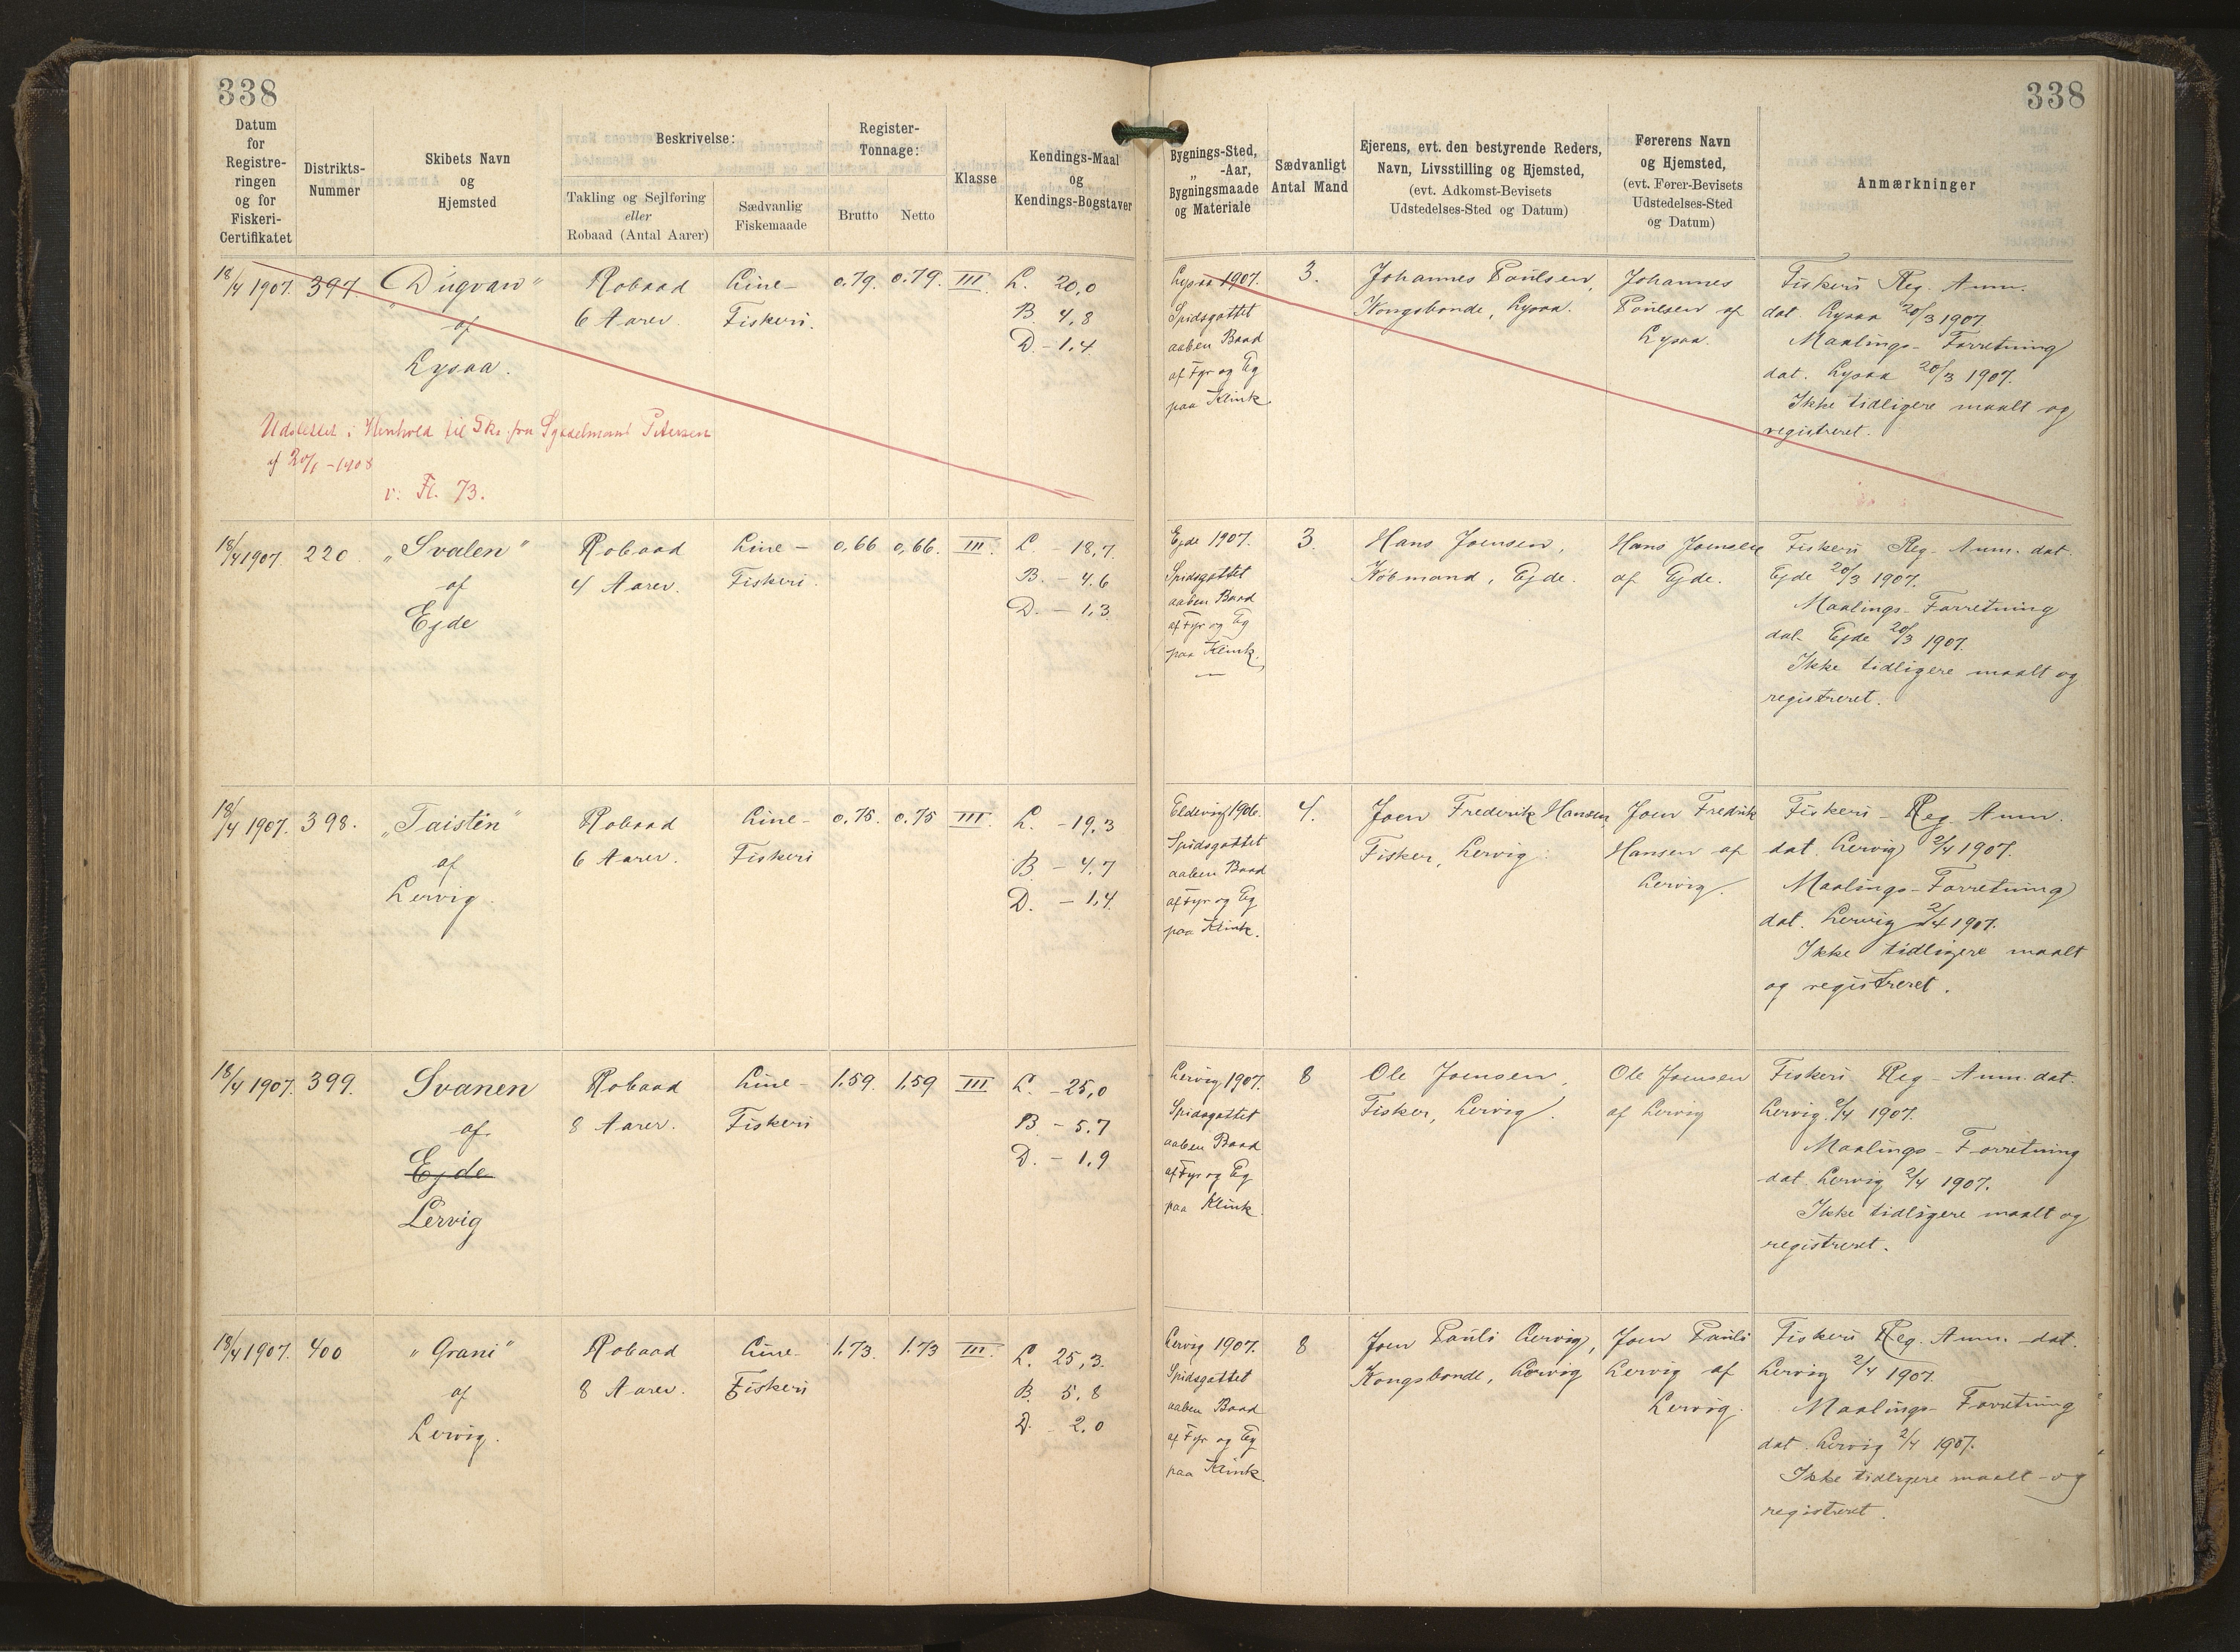 338
338
Datum for Registre-ringen og for Fiskeri-Certifikatet
Distrikts-Nummer
Skibets Navn og Hjemsted
Beskrivelse:
Takling og Sejlføring eller Robaad (Antal Aarer)
Sædvanlig Fiskemaade
Register-Tonnage:
Brutto
Netto
Klasse
Kendings-Maal og Kendings-Bogstaver
Bygnings-Sted, „ -Aar, Bygningsmaade og Materiale
Sædvanligt Antal Mand
Ejerens, evt. den bestyrende Reders, Navn, Livsstilling og Hjemsted, (evt. Adkomst-Bevisets Udstedelses-Sted og Datum)
Førerens Navn og Hjemsted, (evt. Fører-Bevisets Udstedelses-Sted og Datum)
Anmærkninger
18/4 1907. 397. „Dugvan"
af
Lysaa.
Robaad
6 Aarer.
Line-
Fiskeri.
0.79. 0.79. III.
L. 20,0
B. 4,8
D. - 1,4
Lysaa 1907.
Spidsgattet
aaben Baad
af Fyr og Eg
paa Klink.
3.
Johannes Poulsen,
Kongsbonde, Lysaa.
Johannes
Poulsen af
Lysaa.
Fiskeri Reg. Anm.
dat. Lysaa 20/3 1907.
Maalings-Forretning
dat. Lysaa 20/3 1907.
Ikke tidligere maalt og
registreret.
Udslettet i Henhold til Sks. fra Sysselmand Petersen
af 20/1 - 1908
v. Fl. 73.
18/4 1907. 220 „Svalen"
af
Ejde
Robaad
4 Aarer.
Line-
Fiskeri.
0,66 0,66. III.
L. - 18,7.
B. - 4,6
D. - 1,3
Ejde 1907.
Spidsgattet
aaben Baad
af Fyr og Eg
paa Klink.
3.
Hans Joensen,
Købmand, Ejde.
Hans Joensen
af Ejde.
Fiskeri Reg- Anm. dat.
Ejde 20/3 1907.
Maalings-Forretning
dat. Ejde 20/3 1907.
Ikke tidligere maalt og
registreret.
18/4 1907. 398. „Taistin"
af
Lervig.
Robaad
6 Aarer.
Line-
Fiskeri
0.75. 0.75 III.
L. - 19,3
B - 4,7
D. - 1,4
Eldevig 1906.
Spidsgattet
aaben Baad
af Fyr og Eg
paa Klink.
4.
Joen Frederik Hansen,
Fisker, Lervig.
Joen Fredrik
Hansen af
Lervig.
Fiskeri-Reg. Anm.
dat. Lervig 2/4 1907.
Maalings-Forretning
dat. Lervig 2/4 1907.
Ikke tidligere maalt
og registreret.
18/4 1907. 399. Svanen
af
Ejde
Lervig
Robaad
8 Aarer.
Line-
Fiskeri
1.59. 1,59 III
L. - 25,0
B. - 5.7
D. - 1,9
Lervig 1907.
Spidsgattet
aaben Baad
af Fyr og Eg
paa Klink.
8
Ole Joensen,
Fisker, Lervig.
Ole Joensen
af Lervig
Fiskeri Reg- Anm. dat.
Lervig 2/4 1907.
Maalings-Forretning
dat. Lervig 2/4 1907.
Ikke tidligere maalt og
registreret.
18/4 1907. 400 „Grani"
af
Lervig.
Robaad
8 Aarer.
Line-
Fiskeri
1.73. 1.73 III.
L. 25,3.
B. 5,8
D. 2,0
Lervig 1907.
Spidsgattet
aaben Baad
af Fyr og Eg
paa Klink.
8
Joen Pauli Lervig,
Kongsbonde, Lervig
Joen Pauli
Lervig af
Lervig.
Fiskeri Reg. Anm. dat.
Lervig 2/4 1907.
Maalings-Forretning
dat. Lervig 2/4 1907.
Ikke tidligere maalt og
registreret.